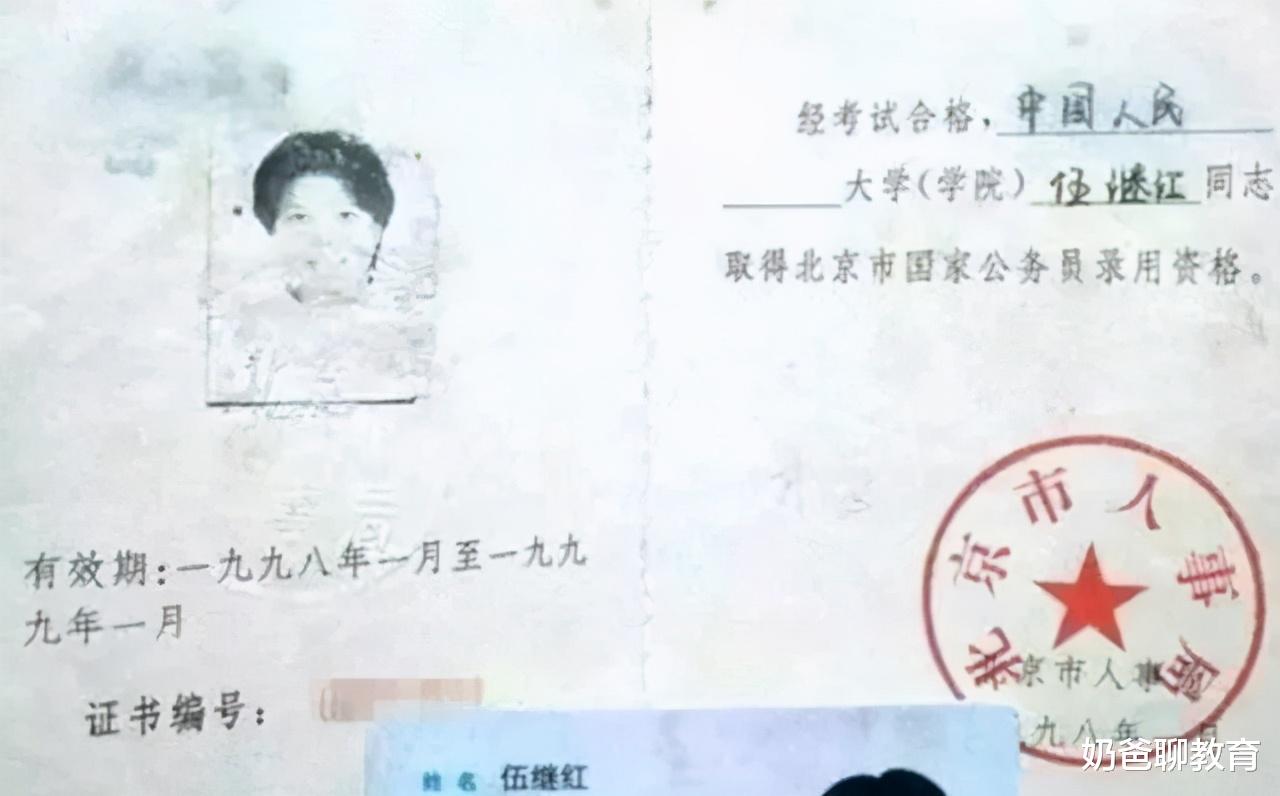 经考试合格，中国人民
大学（学院）伍继红同志
取得北京市国家公务员录用资格。
有效期：一九九八年一月至一九九
九年一月
证书编号：
北京市人事局
京市人事
九八年一月
姓名 伍继红
奶爸聊教育